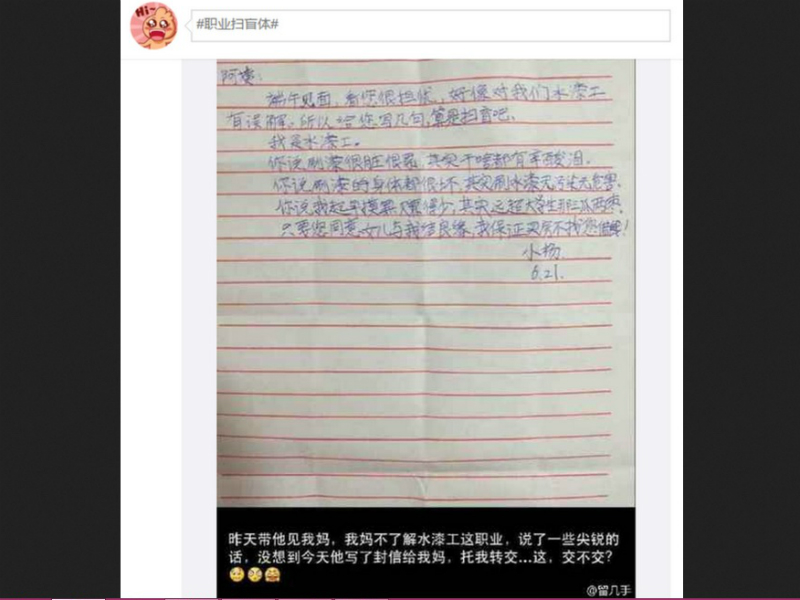 Hi~
#职业扫盲体#
阿姨：
端午见面，看您很担忧，好像对我们水漆工
有误解。所以给您写几句，算是扫盲吧。
我是水漆工。
你说刷漆很脏很累，其实干啥都有辛酸泪。
你说刷漆的身体都很坏，其实刷水漆无污染无危害。
你说我起早摸黑赚得少，其实远超大学生那三瓜两枣。
只要您同意女儿与我结良缘，我保证买房不找您
小杨
6.21.
昨天带他见我妈，我妈不了解水漆工这职业，说了一些尖锐的
话，没想到今天他写了封信给我妈，托我转交...这，交不交？
@留几手